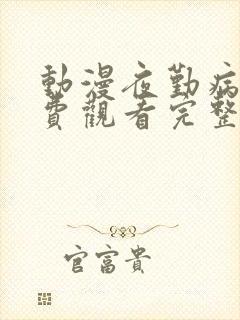 動漫夜勤病
費觀看完整
官富貴